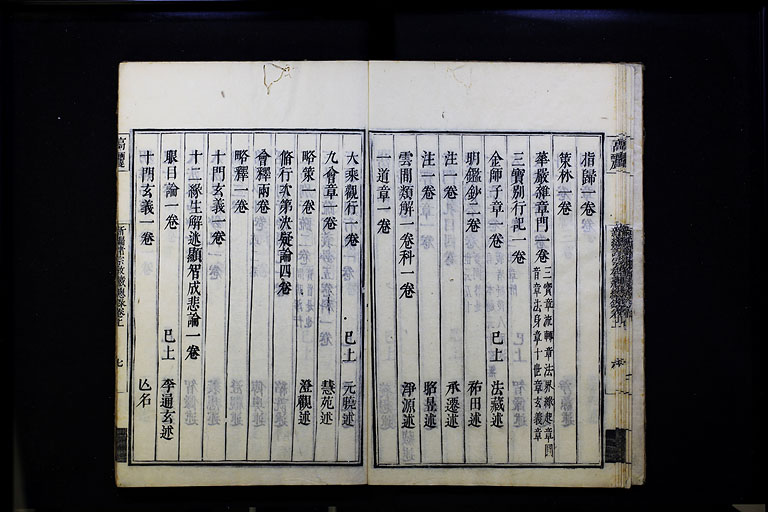 指歸一卷
策林一卷
華嚴雜章門一卷 三寶章流轉章法界緣起章圓
音章法身章十世章玄義章
三寶別行記一卷
金師子章一卷 已上 法藏述
明鑑鈔二卷 祐田述
注一卷 承遷述
注一卷 昭昱述
雲間類解一卷科一卷 淨源述
一道章一卷
大乘觀行一卷 已上 元曉述
九會章一卷 慧苑述
略策一卷 澄觀述
脩行次第決疑論四卷
會釋兩卷
略釋一卷
十門玄義一卷
十二緣生解迷顯智成悲論一卷
眼目論一卷 已上 李通玄述
十門玄義一卷 亾名
高麗
七